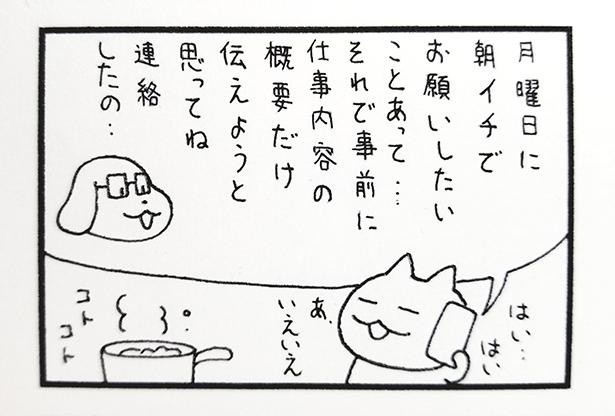 月曜日に
朝イチで
お願いしたい
ことあって…
それで事前に
仕事内容の
概要だけ
伝えようと
思ってね
連絡
したの…
はい…
はい
あ、
いえいえ
コト
コト